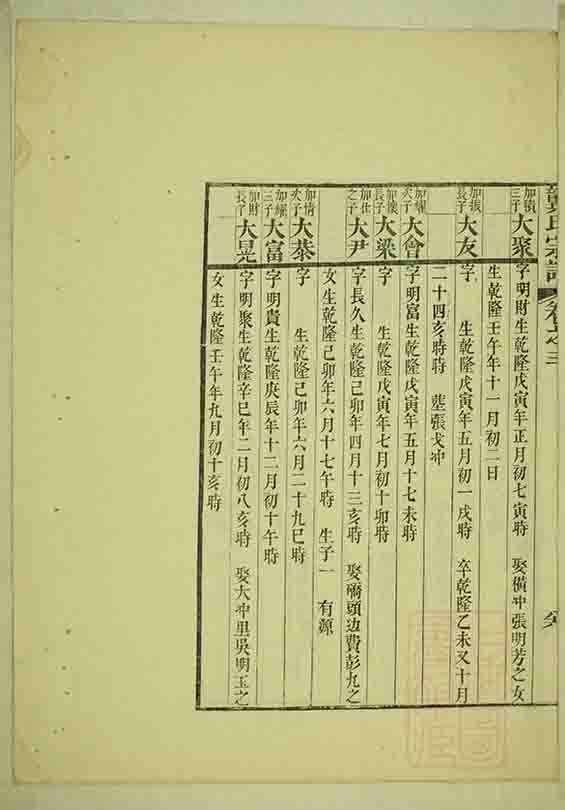 氏宗譜 卷之三
加積三子 大聚 字明財生乾隆戊寅年正月初七寅時 娶橫冲張明芳之女
生乾隆壬午年十一月初二日
加振長子 大友 字 生乾隆戊寅年五月初一戌時 卒乾隆乙未又十月
二十四亥時 塟張戈冲
加 次子 大會 字明富生乾隆戊寅年五月十七未時
加 長子 大梁 字 生乾隆戊寅年七月初十卯時
加仕之子 大尹 字長久生乾隆己卯年四月十三亥時 娶 頭边費彭九之
女生乾隆己卯年六月十七午時 生子一 有源
加情次子 大恭 字 生乾隆己卯年六月二十九巳時
加 三子 大富 字明貴生乾隆庚辰年十二月初十午時
加財長子 大晃 字明聚生乾隆辛巳年二月初八亥時 娶大冲里吳明玉之
女生乾隆壬午年九月初十亥時